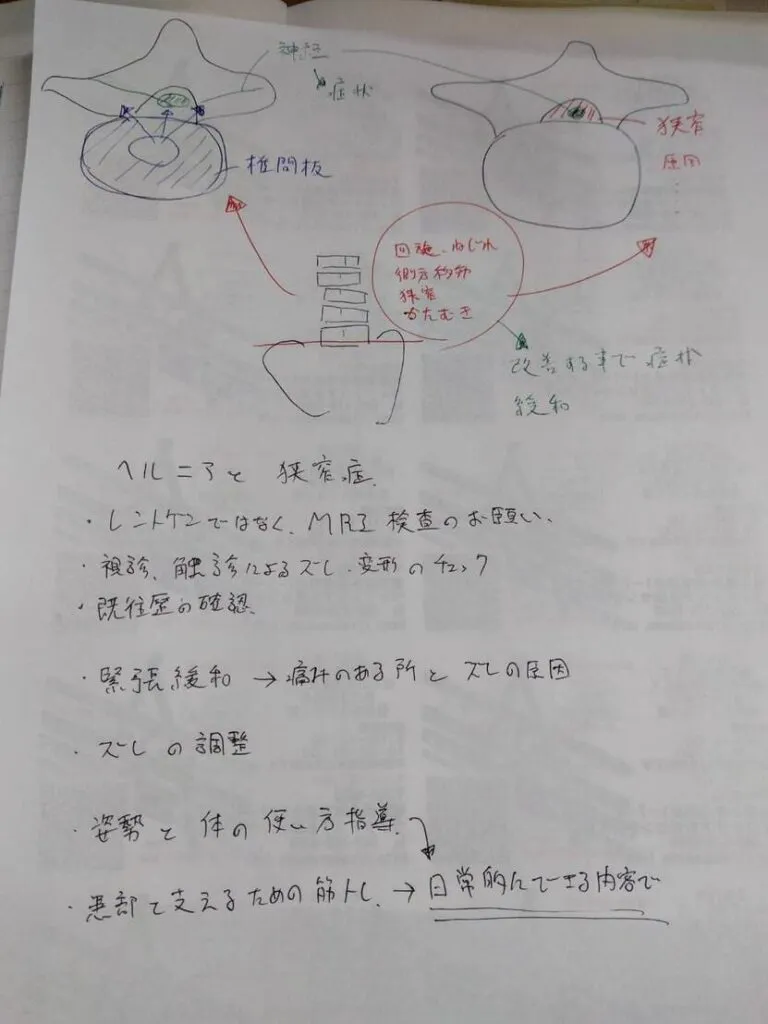 神経
症状
狭窄
原因
椎間板
回旋、ねじれ
側方移動
狭窄
かたむき
改善する事で症状
緩和
ヘルニアと狭窄症
・レントゲンではなく、MRI検査のお願い、
・視診、触診によるズレ、変形のチェック
・既往歴の確認、
・緊張緩和 → 痛みのある所とズレの原因
・ズレの調整
・姿勢と体の使い方指導、
・患部を支えるための筋トレ、→ 日常的にできる内容で